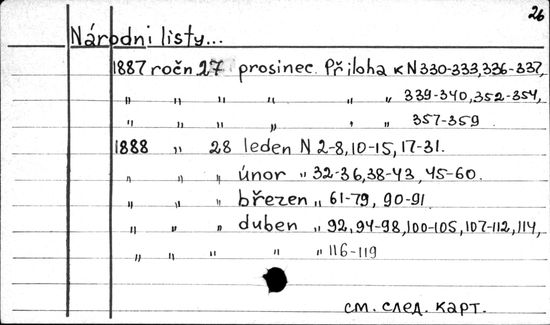 26
Národni listy...
1887 ročn. 27 prosinec. Příloha к N 330-333, 336-337,
„ „ „ „ „ „ 339-340, 352-354,
„ „ „ „ „ „ 357-359.
1888 „ 28 leden N 2-8, 10-15, 17-31.
„ „ „ únor „ 32-36, 38-43, 45-60.
„ „ „ březen „ 61-79, 90-91
„ „ „ duben „ 92, 94-98, 100-105, 107-112, 114,
„ „ „ „ „ 116-119
см. след. карт.